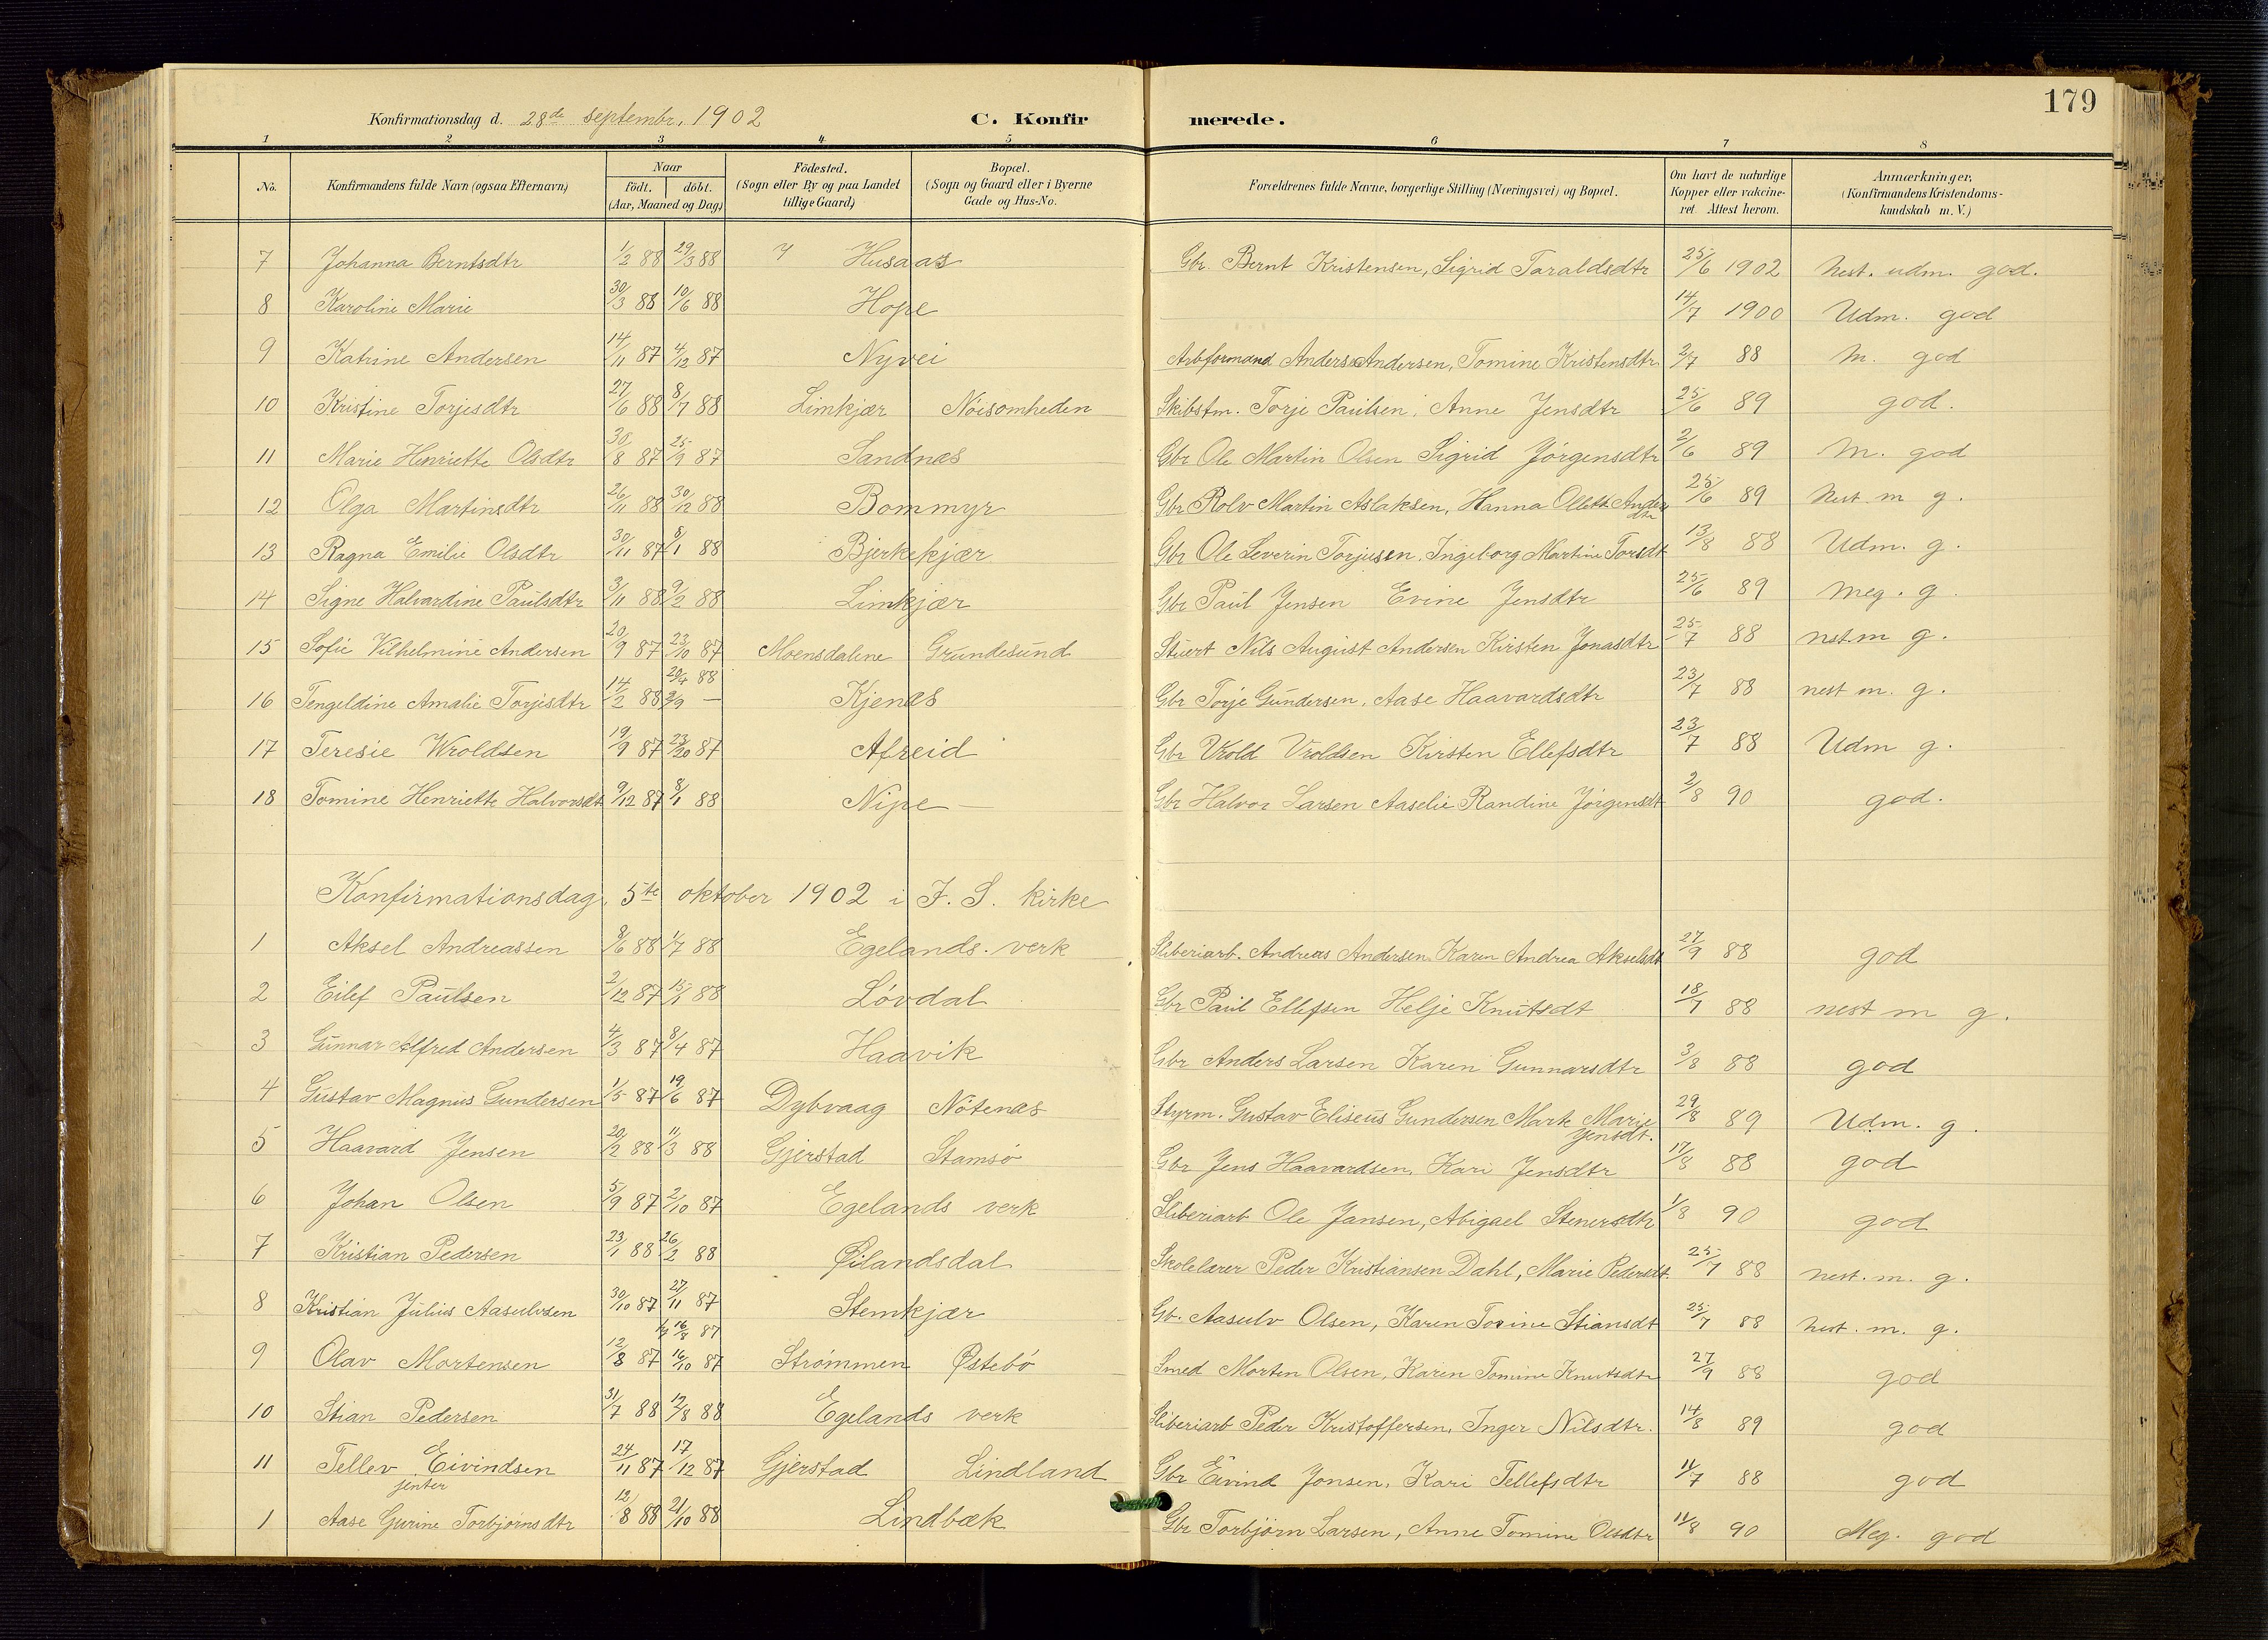 179
Konfirmationsdag d. 28de septembr. 1902 C. Konfirmerede.
1 2 3 4 5 6 7 8
No. Konfirmandens fulde Navn (ogsaa Efternavn) Naar födt. döbt. (Aar, Maaned og Dag) Födested. (Sogn eller By og paa Landet tillige Gaard) Bopæl. (Sogn og Gaard eller i Byerne Gade og Hus-No. Forældrenes fulde Navne, borgerlige Stilling (Næringsvei) og Bopæl. Om havt de naturlige Kopper eller vakcineret. Attest herom. Anmærkninger, (Konfirmandens Kristendomskundskab m. V.)
7 Johanna Berntsdtr 1/2 88 29/3 88 Husaas Gbr. Bernt Kristensen, Sigrid Taraldsdtr 25/6 1902 Nest. udm. god.
8 Karoline Marie 30/3 88 10/6 88 Hope 14/7 1900 Udm. god
9 Katrine Andersen 14/11 87 4/12 87 Nyvei Arbformand Anders Andersen, Tomine Kristensdtr 2/7 88 M. god
10 Kristine Torjesdtr 27/6 88 8/7 88 Limkjær Nöisomheden Skibstm. Torje Paulsen, Anne Jensdtr 25/6 89 god.
11 Marie Henriette Olsdtr 30/8 87 25/9 87 Sandnæs Gbr Ole Martin Olsen Sigrid Jörgensdtr 2/6 89 M. god
12 Olga Martinsdtr 26/11 88 30/12 88 Bommyr Gbr Rolv Martin Aslaksen, Hanna Olette Anders
dtr 25/6 89 Nest m g.
13 Ragna Emilie Olsdtr 30/11 87 8/1 88 Bjerkekjær Gbr Ole Severin Torjusen, Ingeborg Martine Torsdt 13/8 88 Udm. g.
14 Signe Halvardine Paulsdtr 3/11 88 9/2 88 Limkjær Gbr Paul Jensen Evine Jensdtr 25/6 89 Meg. g.
15 Sofie Vilhelmine Andersen 20/9 87 23/10 87 Moensdalene Grundesund Stuert Nils August Andersen Kirsten Jonasdtr 25/7 88 nst. m g.
20/4 88
16 Tengeldine Amalie Torjesdtr 14/2 88 2/9 — Kjenæs Gbr Torje Gundersen, Aase Haavardsdtr 23/7 88 nest m. g.
17 Teresie Wroldsen 19/9 87 23/10 87 Afreid Gbr Vrold Vroldsen Kirsten Ellefsdtr 23/7 88 Udm g.
18 Tomine Henriette Halvorsdt 9/12 87 8/1 88 Nipe — Gbr Halvor Larsen Aaselie Randine Jörgensdt 2/8 90 god.
Konfirmationsdag. 5te oktober 1902 i F. S. kirke
1 Aksel Andreassen 8/6 88 1/7 88 Egelands. verk Sliberiarb. Andreas Andersen Karen Andrea Akselsdt 27/9 88 god
2 Eilef Paulsen 2/12 87 15/1 88 Lövdal Gbr Paul Ellefsen Helje Knutsdt 18/7 88 nest m g.
3 Gunnar Alfred Andersen 4/3 87 8/4 87 Haavik Gbr Anders Larsen Karen Gunnarsdtr 3/8 88 god
4 Gustav Magnus Gundersen 1/5 87 19/6 87 Dybvaag Nötenæs Styrm. Gustav Eliseus Gundersen Mark Marie
Jensdt. 29/8 89 Udm. g.
5 Haavard Jensen 20/2 88 11/3 88 Gjerstad Stamsö Gbr Jens Haavardsen, Kari Jensdtr 17/8 88 god
6 Johan Olsen 5/9 87 2/10 87 Egelands verk Sliberiarb Ole Jansen, Abigael Stenersdtr 1/8 90 god
7 Kristian Pedersen 23/1 88 26/2 88 Øilandsdal Skolelærer Peder Kristiansen Dahl, Marie Pedersdt. 25/7 88 nest. m. g.
8 Kristian Julius Aasulvsen 30/10 87 27/11 87 Stemkjær Gb. Aasulv Olsen, Karen Torine Stiansdt 25/7 88 nest. m. g.
16/8 87
9 Olav Mortensen 12/8 87 16/10 87 Strömmen Østebö Smed Morten Olsen, Karen Tomine Knutsdtr 27/9 88 god
10 Stian Pedersen 31/7 88 12/8 88 Egelands verk Sliberiarb Peder Kristoffersen, Inger Nilsdtr. 14/8 89 god
11 Tellev Eivindsen 24/11 87 17/12 87 Gjerstad Lindland Gbr Eivind Jonsen, Kari Tellefsdtr 11/7 88 god
jenter
1 Aase Gurine Torbjörnsdtr 12/8 88 21/10 88 Lindbæk Gbr Torbjörn Larsen, Anne Tomine Olsdtr 11/8 90 Meg. god